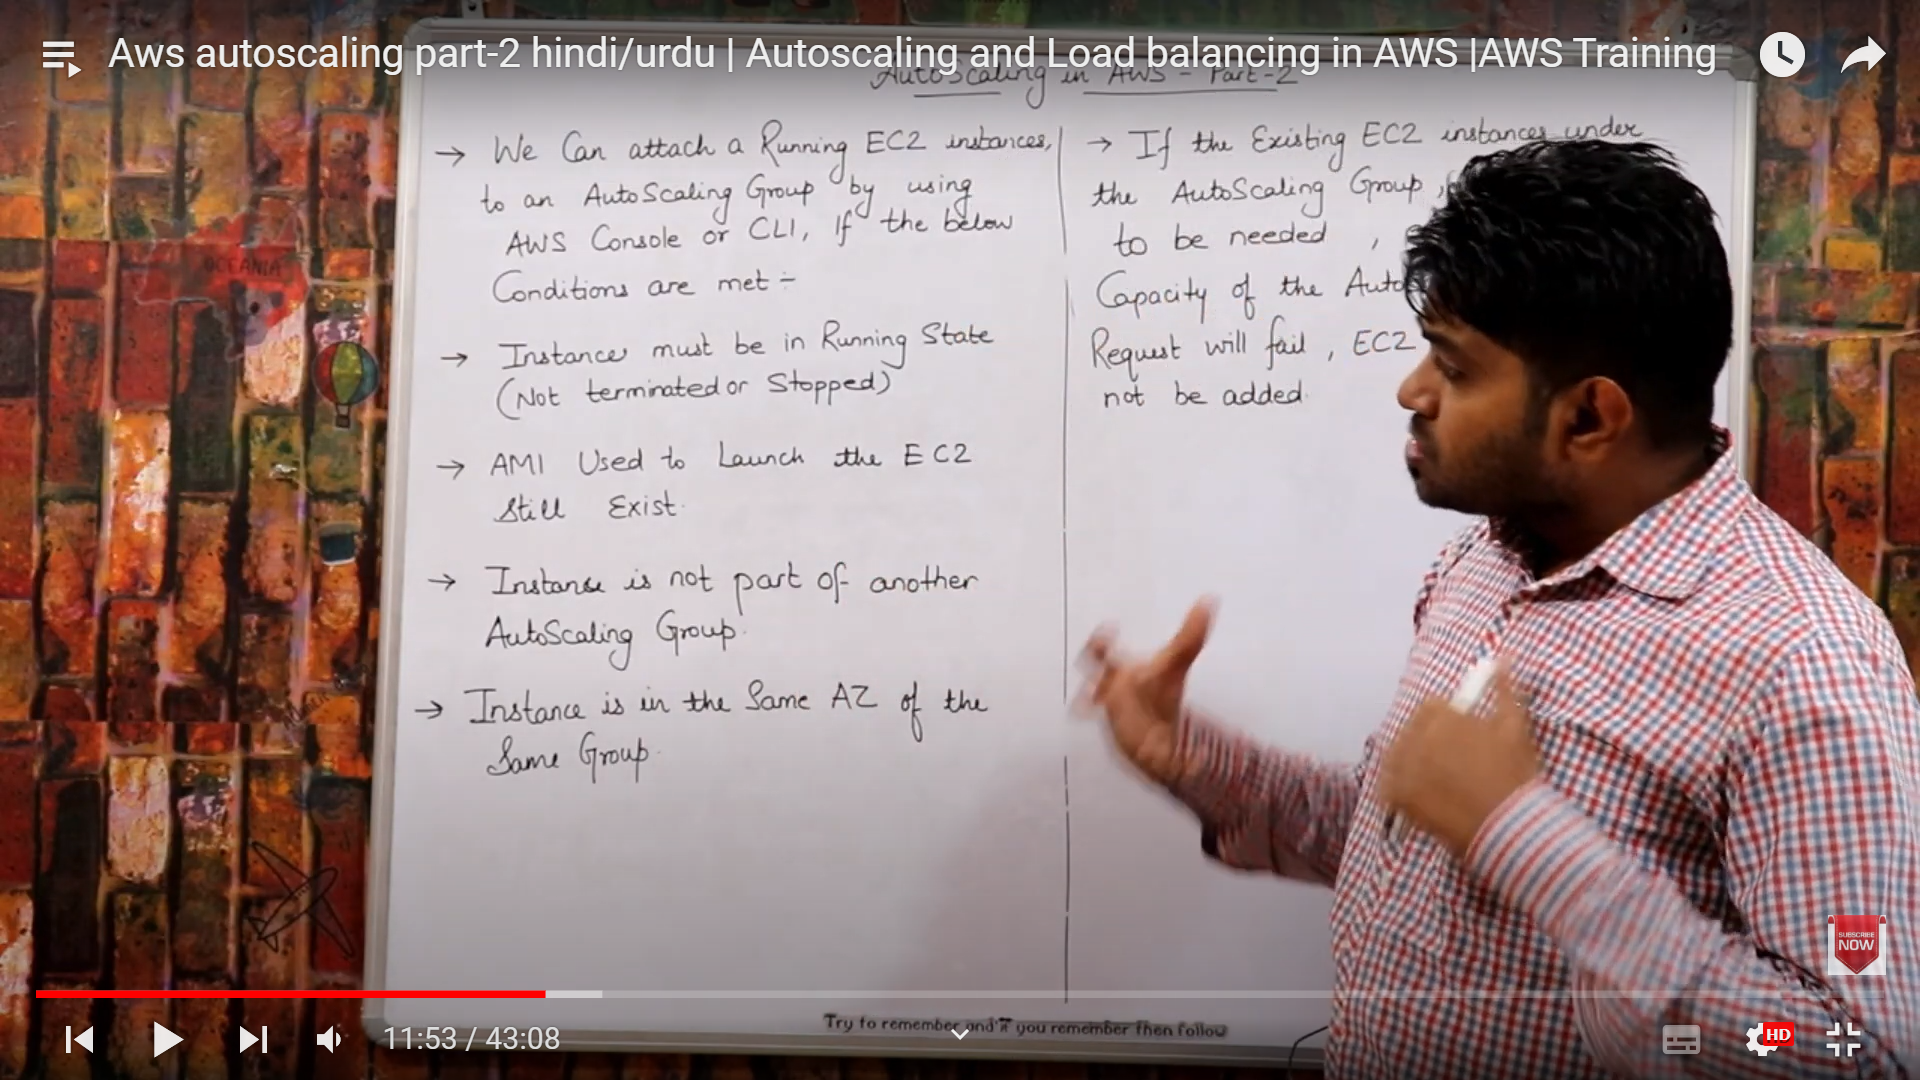 Aws autoscaling part-2 hindi/urdu | Autoscaling and Load balancing in AWS |AWS Training
AutoScaling in AWS - Part-2
→ We Can attach a Running EC2 instances,
to an AutoScaling Group by using
AWS Console or CLI, If the below
Conditions are met ÷
→ Instances must be in Running State
(Not terminated or Stopped)
→ AMI Used to Launch the EC2
Still Exist.
→ Instance is not part of another
AutoScaling Group.
→ Instance is in the Same AZ of the
Same Group.
→ If the Existing EC2 instances under
the AutoScaling Group,
to be needed ,
Capacity of the Auto
Request will fail, EC2
not be added.
OCEANIA
Try to remember and if you remember then follow
SUBSCRIBE
NOW
11:53 / 43:08
HD